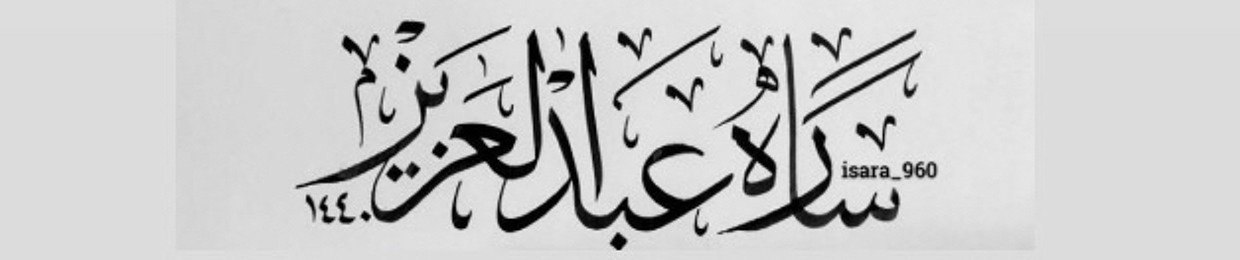 ساره عبدالعزيز
isara_960
١٤٤٠